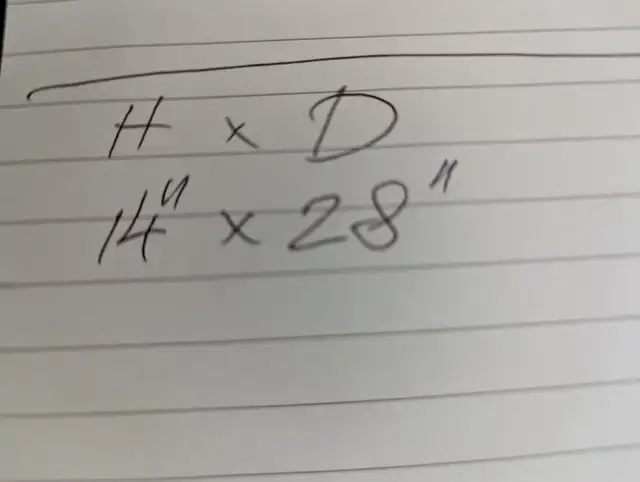 H x D
14" x 28"